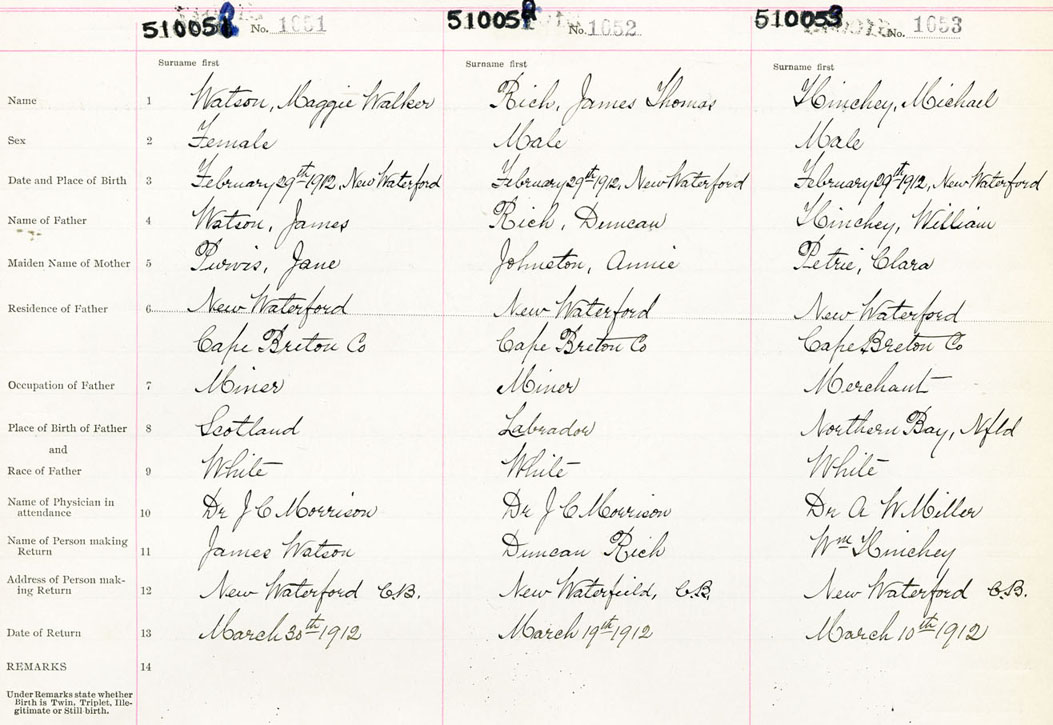 No. 1051 No. 1052 510053 No. 1053
Surname first Surname first Surname first
Name 1 Watson, Maggie Walker Rich, James Thomas Hinchey, Michael
Sex 2 Female Male Male
Date and Place of Birth 3 February 29th 1912, New Waterford February 29th 1912, New Waterford February 29th 1912, New Waterford
Name of Father 4 Watson, James Rich, Duncan Hinchey, William
Maiden Name of Mother 5 Purvis, Jane Johnston, Annie Petrie, Clara
Residence of Father 6 New Waterford New Waterford New Waterford
Cape Breton Co Cape Breton Co Cape Breton Co
Occupation of Father 7 Miner Miner Merchant
Place of Birth of Father 8 Scotland Labrador Northern Bay, Nfld
and
Race of Father 9 White White White
Name of Physician in
attendance 10 Dr J C Morrison Dr J C Morrison Dr A W Miller
Name of Person making
Return 11 James Watson Duncan Rich Wm Hinchey
Address of Person mak-
ing Return 12 New Waterford C.B. New Waterfield, C.B. New Waterford C.B.
Date of Return 13 March 30th 1912 March 19th 1912 March 10th 1912
REMARKS 14
Under Remarks state whether
Birth is Twin, Triplet, Ille-
gitimate or Still-birth.